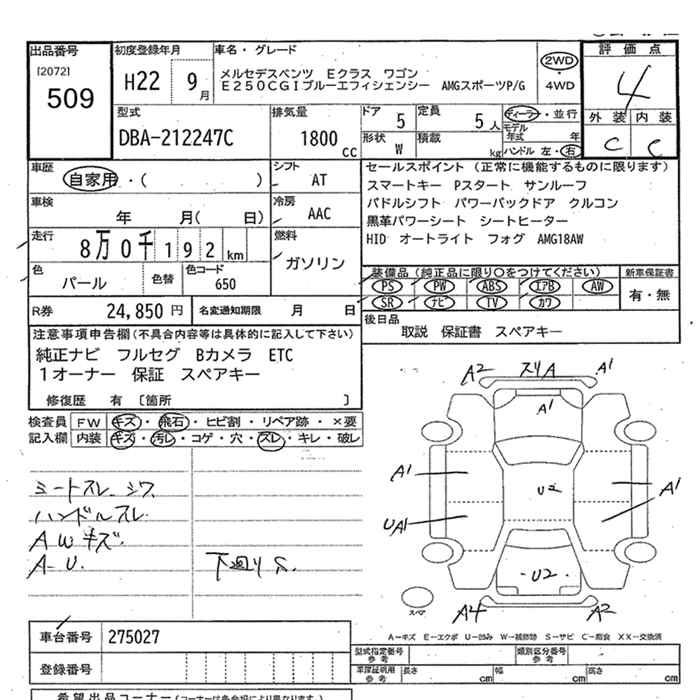 出品番号 初度登録年月 車名・グレード 評価点
[2072] 509 H22 9月 メルセデスベンツ Eクラス ワゴン 2WD・4WD 4
E250CGIブルーエフィシェンシー AMGスポーツP/G
型式 排気量 ドア 5 定員 5人 ディーラー・並行 外装 内装
DBA-212247C 1800cc 形状 W 積載 kg モデル年式 年 C C
ハンドル 左・右
車歴 自家用・( ) シフト AT セールスポイント (正常に機能するものに限ります)
スマートキー Pスタート サンルーフ
車検 年 月( 日) 冷房 AAC パドルシフト パワーバックドア クルコン
走行 8万0千192km 燃料 ガソリン 黒革パワーシート シートヒーター
HID オートライト フォグ AMG18AW
色 パール 色替 色コード 650 装備品(純正品に限り○をつけてください) 新車保証書
PS PW ABS エアB AW 有・無
SR ナビ TV カワ
R券 24,850円 名変通知期限 月 日 後日品
取説 保証書 スペアキー
注意事項申告欄(不具合内容等は具体的に記入して下さい)
純正ナビ フルセグ Bカメラ ETC
1オーナー 保証 スペアキー
修復歴 有 〔箇所 〕
検査員記入欄 FW キズ・飛石・ヒビ割・リペア跡・×要
内装 キズ・汚レ・コゲ・穴・スレ・キレ・破レ
A2 スリA A1
A1
A1 U2 A1
UA1
U2
スペア A4 A2
シートスレ シワ
ハンドルスレ
AWキズ
A-U 下廻りS
A-キズ E-エクボ U-凹み W-補修跡 S-サビ C-腐食 XX-交換済
車台番号 275027
登録番号
型式指定番号 参考 類別区分番号 参考
車庫証明用 参考 長さ cm 幅 cm 高さ cm
希望出品コーナー